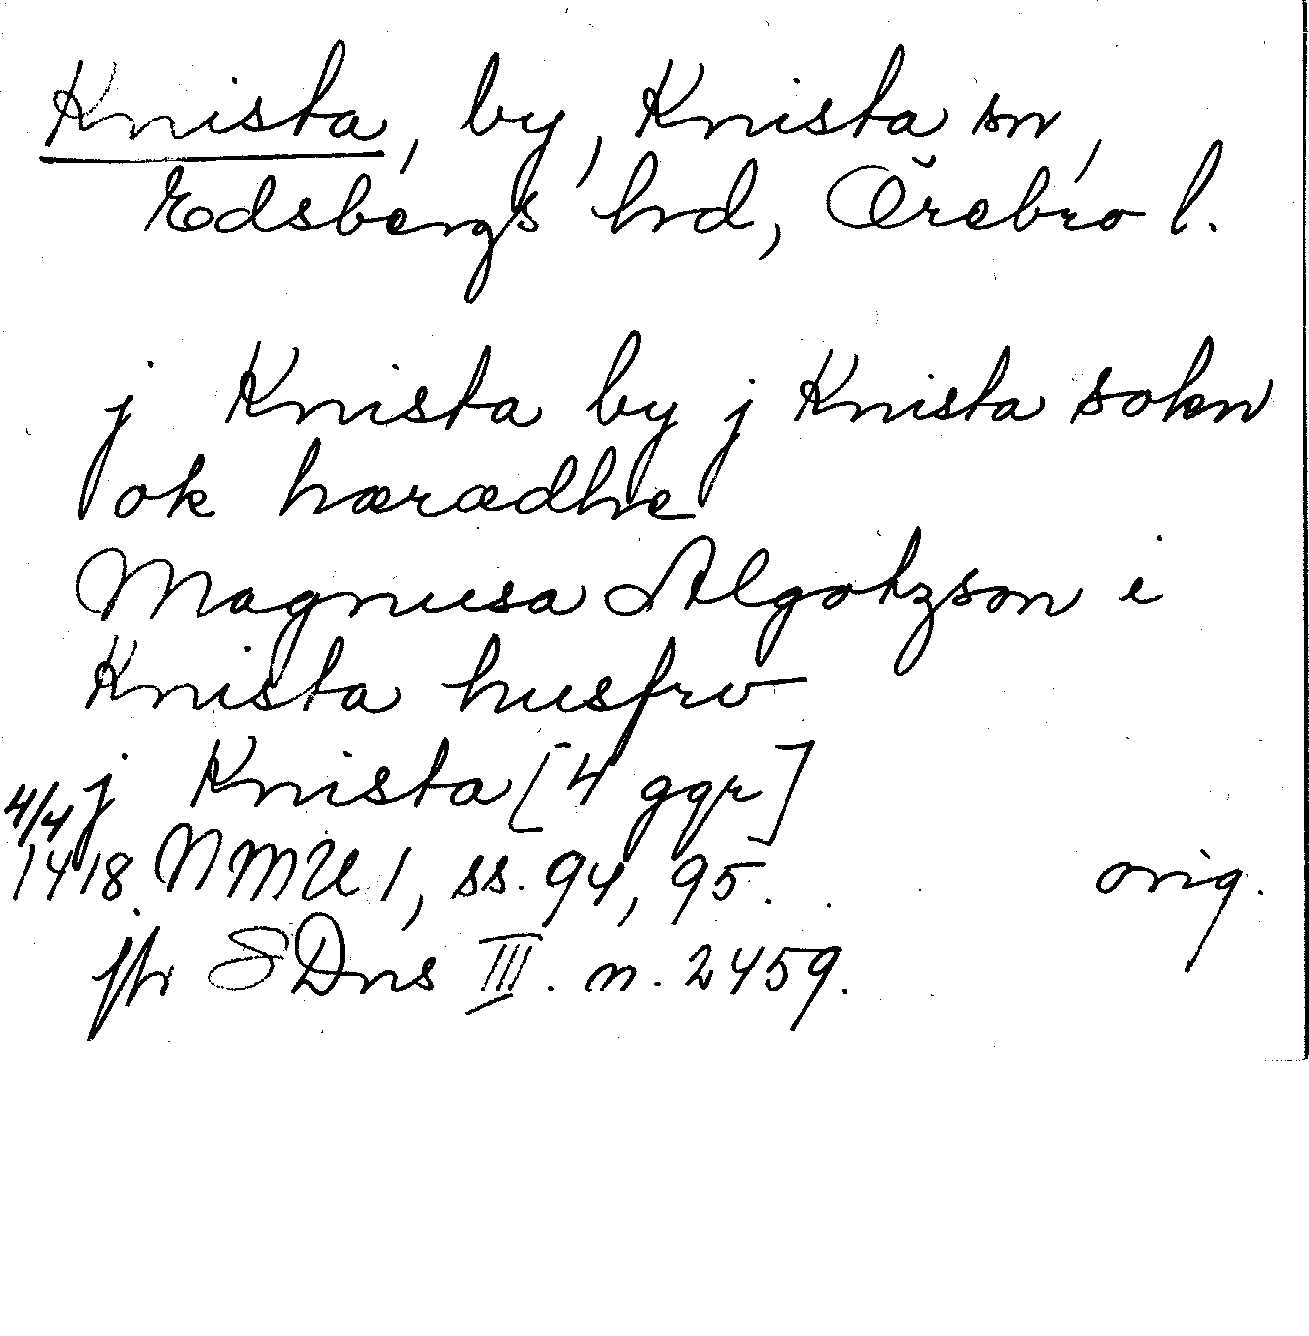 Knista, by, Knista sn,
Edsbergs hrd, Örebro l.
j Knista by j Knista sokn
ok hæradhe
Magnusa Algotzson i
Knista husfrv
j Knista [4 ggr]
4/4
1418 NMU 1, ss. 94, 95. orig.
jfr SDns III. n. 2459.